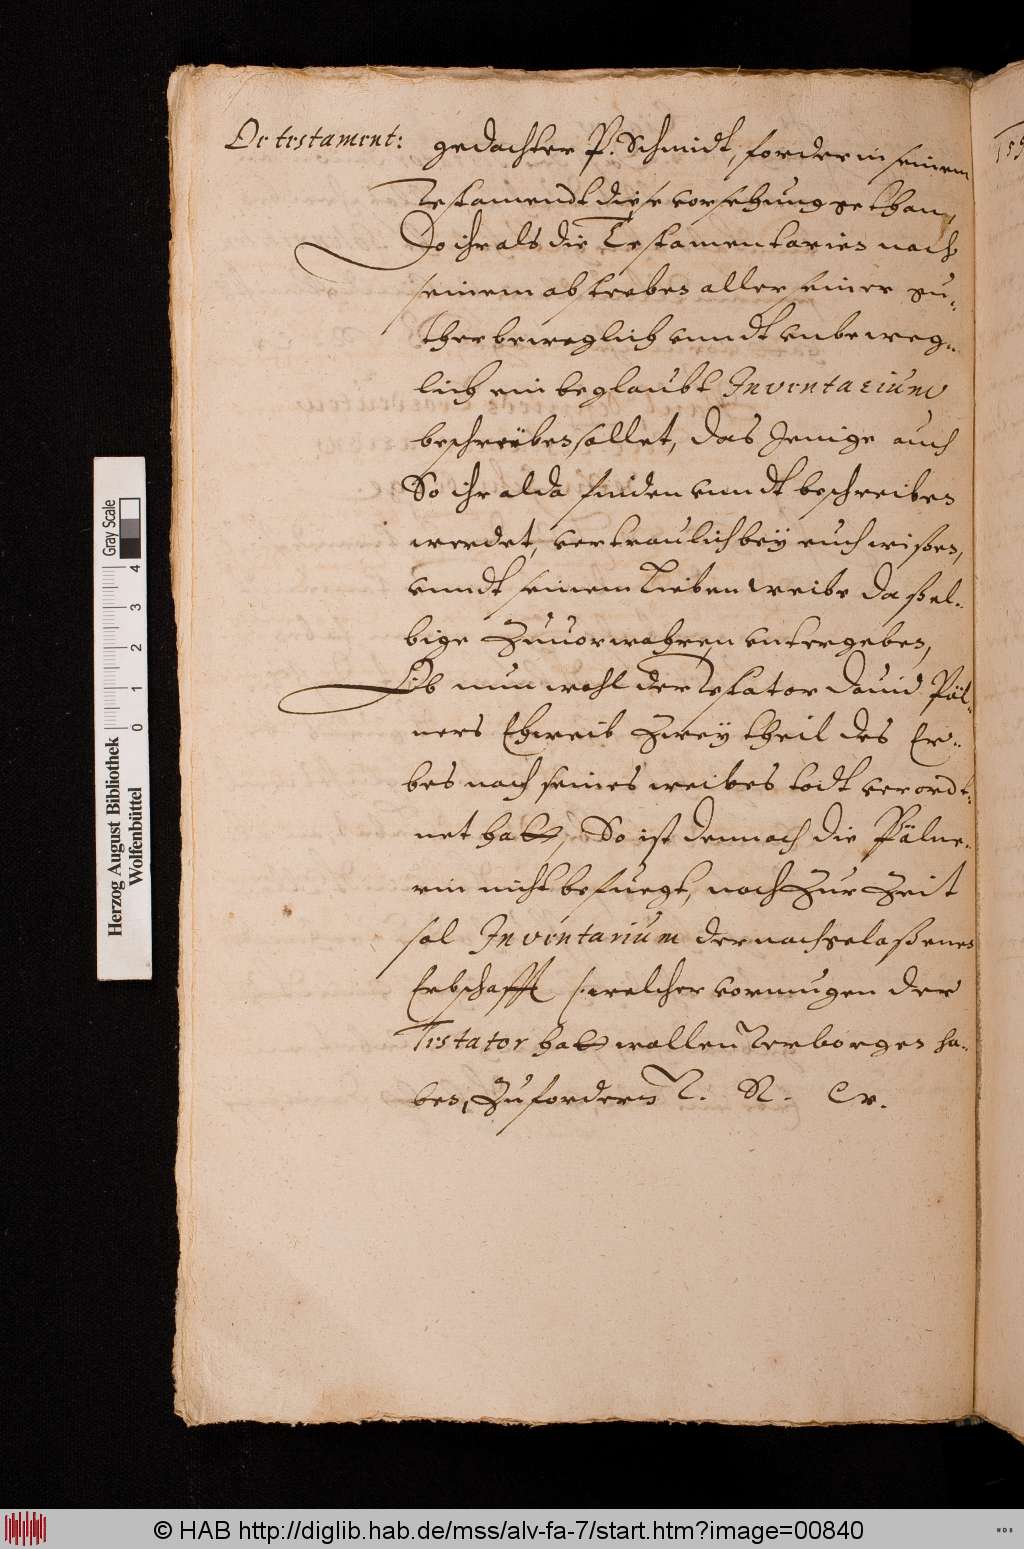 De testament: gedachter P. Schmidt, fordern in seinem
Testamendt diese vorsehung gethan,
So ihr als die Testamentarien nach
seinem absterben aller seiner gu-
ther beweglich vnndt vnbeweg-
lich ein beglaubt Inventarium
beschreiben sollet, das Jenige auch
So ihr alda finden vnndt beschreiben
werdet, vertraulich bey euch wißen,
vnndt seinem lieben weibe daßel-
bige Zuuorwahren vntergeben,
Ob nun wohl der Testator Dauid Päl-
ners Eheweib zwey theil des Er-
bes nach seines weibes todt verordt-
net hatt, So ist dennoch die Pälne-
rin nicht befuegt, noch Zur Zeit
sol Inventarium der nachgelaßenen
Erbschafft (: welcher vormugen der
Testator hatt wollen verborgen ha-
ben, Zufordern V. R. W.
Herzog August Bibliothek
Wolfenbüttel
0 1 2 3 4
Gray Scale
© HAB http://diglib.hab.de/mss/alv-fa-7/start.htm?image=00840